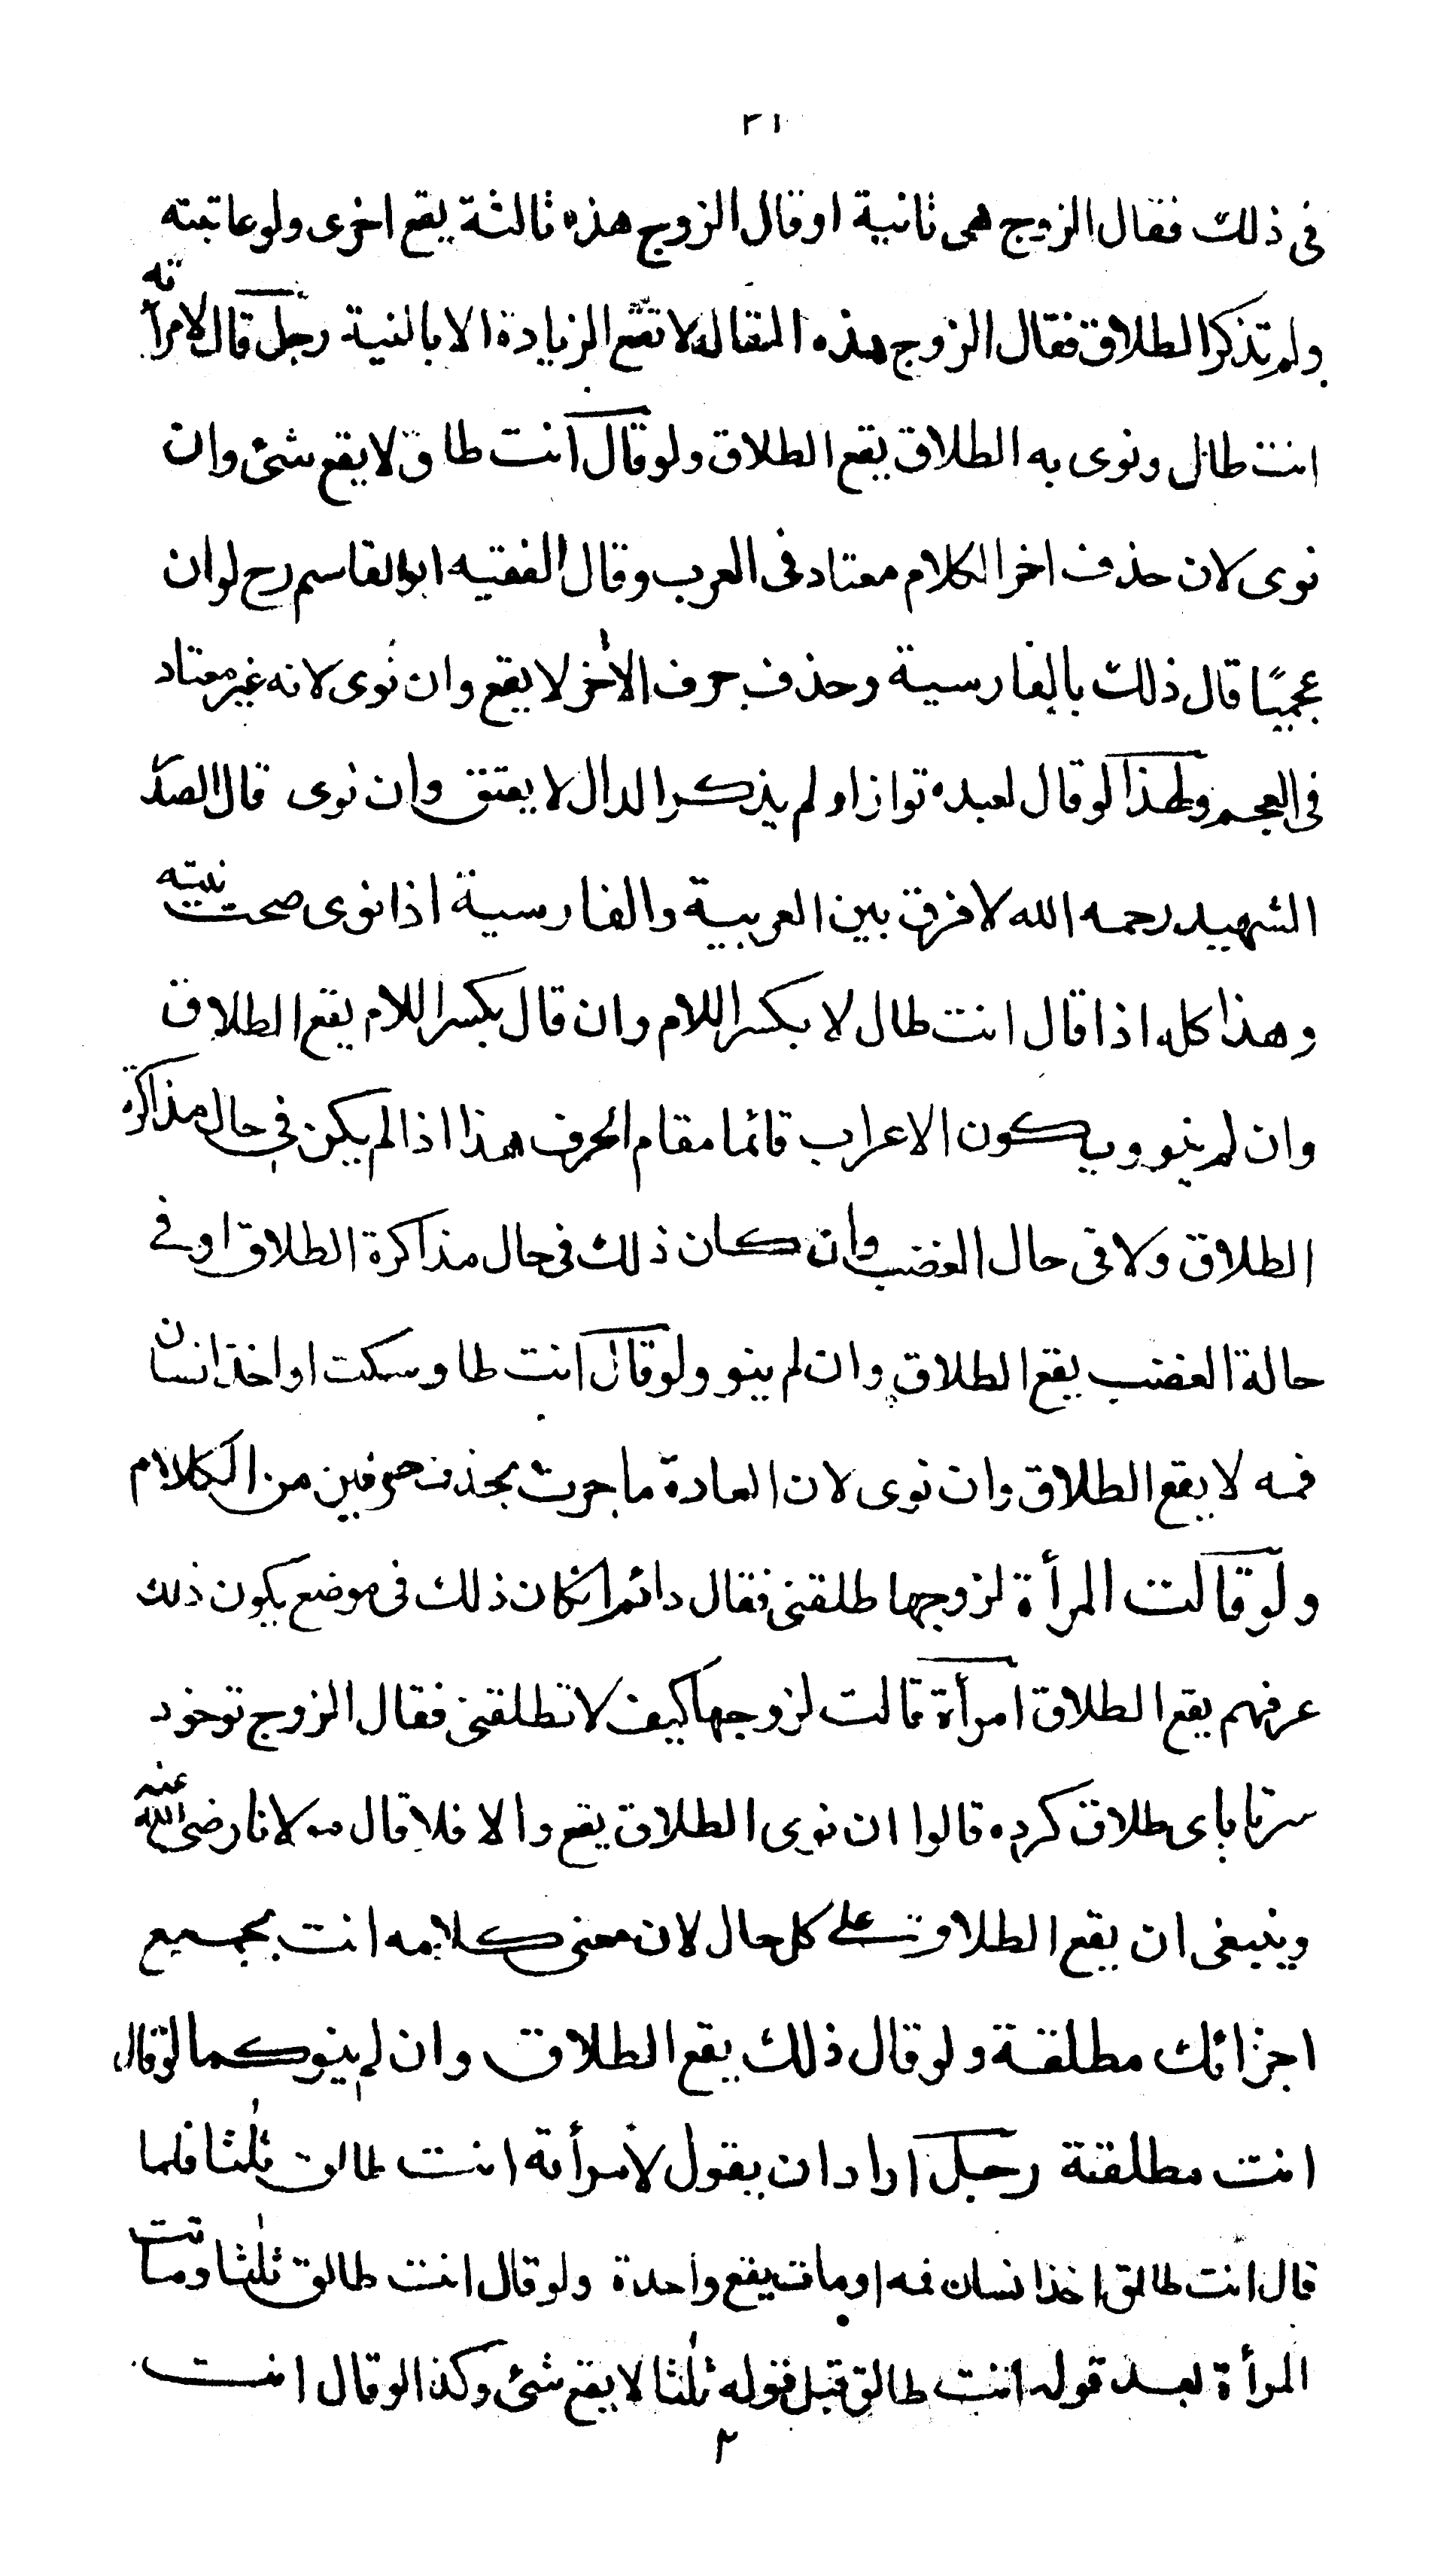 ٢١
فى ذلك فقال الزوج هى ثانية او قال الزوج هذه ثالثة يقع اخرى ولو عاتبته
ولم تذكر الطلاق فقال الزوج هذه المقالة لا تقع الزيادة الا بالنية رجل قال لامرأته
انت طال ونوى به الطلاق يقع الطلاق ولو قال انت طاق لا يقع شئ وان
نوى لان حذف اخر الكلام معتاد فى العرب وقال الفقيه ابو القاسم رح لو ان
عجميًا قال ذلك بالفارسية وحذف حرف الاخر لا يقع وان نوى لانه غير معتاد
فى العجم ولهذا لو قال لعبده توازاو لم يذكر الدال لا يعتق وان نوى قال الصدر
الشهيد رحمه الله لا فرق بين العربية والفارسية اذا نوى صحت نيته
وهذا كله اذا قال انت طال لا بكسر اللام وان قال بكسر اللام يقع الطلاق
وان لم ينو ويكون الاعراب قائما مقام الحرف هذا اذا لم يكن فى حال مذاكرة
الطلاق ولا فى حال الغضب وان كان ذلك فى حال مذاكرة الطلاق او فى
حالة الغضب يقع الطلاق وان لم ينو ولو قال انت طا وسكت او اخذ انسان
فمه لا يقع الطلاق وان نوى لان العادة ما جرت بحذف حرفين من الكلام
ولو قالت المرأة لزوجها طلقنى فقال دائم انكان ذلك فى موضع يكون ذلك
عرفهم يقع الطلاق امرأة قالت لزوجها كيف لا تطلقنى فقال الزوج توخود
سرتا باى طلاق كرده قالوا ان نوى الطلاق يقع والا فلا قال مولانا رضى الله عنه
وينبغى ان يقع الطلاق على كل حال لان معنى كلامه انت بجميع
اجزائك مطلقة ولو قال ذلك يقع الطلاق وان لم ينو كما لو قال
انت مطلقة رجل اراد ان يقول لامرأته انت طالق ثلثا فلما
قال انت طالق اخذ انسان فمه او مات يقع واحدة ولو قال انت طالق ثلثا وماتت
المرأة بعد قوله انت طالق قبل قوله ثلثا لا يقع شئ وكذا لو قال انت
٢